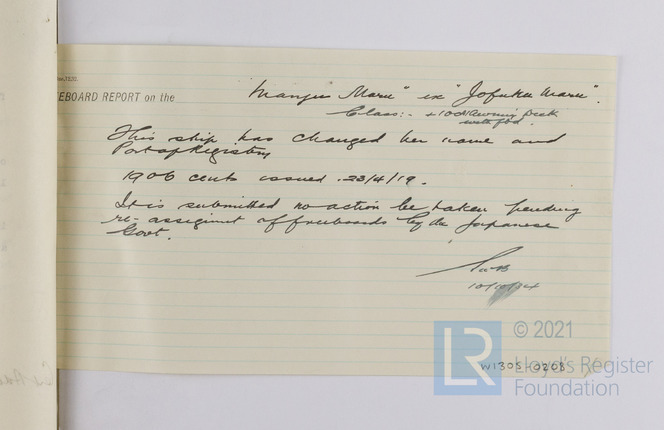 EBOARD REPORT on the
"Manju Maru" ex "Jofuku Maru".
Class:- +100A1 Awning Deck
with fbd.
This ship has changed her name and
Port of Registry
1906 certs issued 23/4/19.
It is submitted no action be taken pending
re-assigment of freeboards by the Japanese
Govt.
10/10/
W1305-0208
LR
© 2021
Lloyd's Register
Foundation